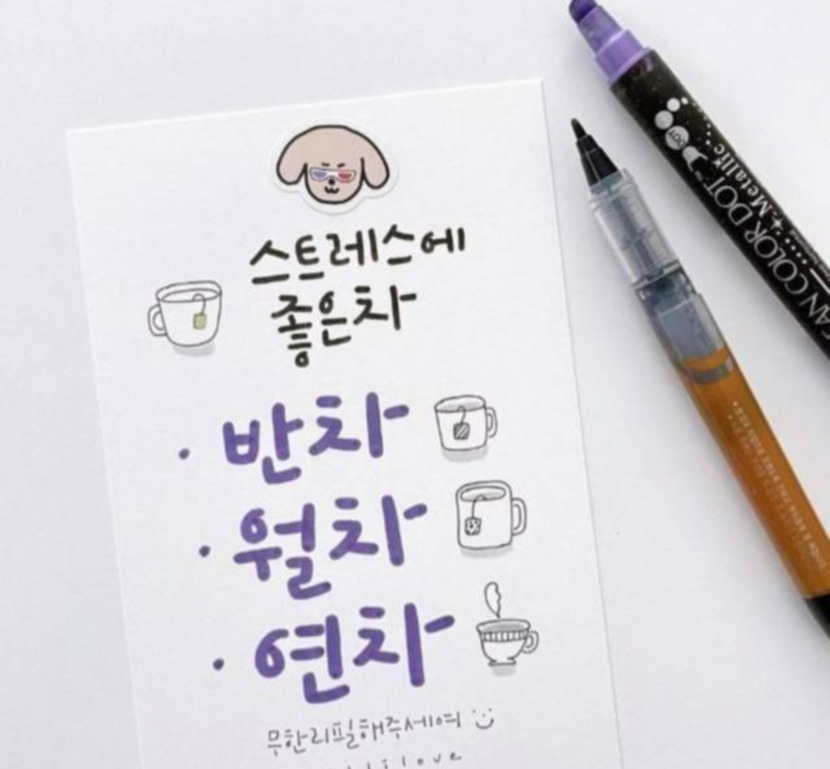 스트레스에
좋은차
· 반차
· 월차
· 연차
무한리필해주세여
love
DOT
SAN COLOR DOT™
Metallic